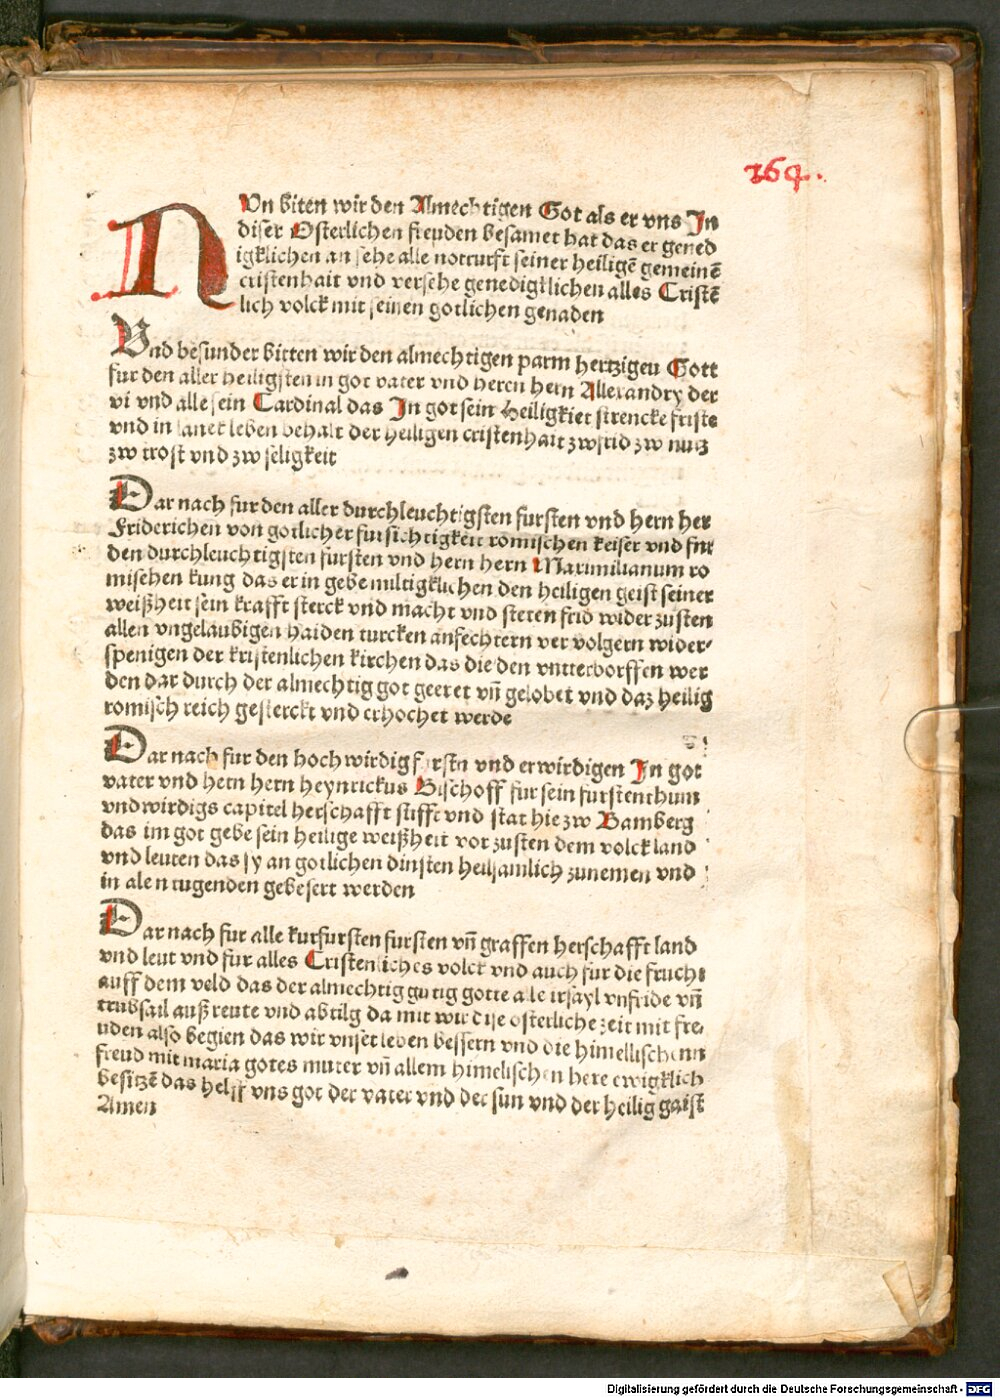 164.
NVn biten wir den Almechtigen Got als er vns In
diser Osterlichen freuden besamet hat das er gened
igklichen an sehe alle notturft seiner heiligē gemeinē
cristenhait vnd versehe genedigklichen alles Cristē
lich volck mit seinen gotlichen genaden
Vnd besunder bitten wir den almechtigen parm hertzigen Gott
fur den aller heiligsten in got vater vnd heren hern Allexandry der
vi vnd alle sein Cardinal das In got sein Heiligkiet strencke friste
vnd in lanet leben behalt der heiligen cristenhait zw frid zw nutz
zw trost vnd zw seligkeit
Dar nach fur den aller durchleuchtigsten fursten vnd hern her
Friderichen von gotlicher fursichtigkeit romischen keiser vnd fur
den durchleuchtigsten fursten vnd hern hern Maximilianum ro
mischen kung das er in gebe miltigklichen den heiligen geist seiner
weißheit sein krafft sterck vnd macht vnd steten frid wider zusten
allen vngelaubigen haiden turcken anfechtern ver volgern wider-
spenigen der kristenlichen kirchen das die den vntterworffen wer
den dar durch der almechtig got geeret vn̄ gelobet vnd daz heilig
romisch reich gesterckt vnd erhochet werde
Dar nach fur den hoch wirdig fursten vnd erwirdigen In got
vater vnd hern hern heynrickus Bischoff fur sein furstenthum
vnd wirdigs capitel herschafft stifft vnd stat hie zw Bamberg
das im got gebe sein heilige weißheit vor zusten dem volck land
vnd leuten das sy an gotlichen dinsten heilsamlich zunemen vnd
in alen tugenden gebesert werden
Dar nach fur alle kurfursten fursten vn̄ graffen herschafft land
vnd leut vnd fur alles Cristenliches volck vnd auch fur die frucht
auff dem veld das der almechtig gutig gotte alle irsayl vnfride vn̄
trubsail auß reute vnd abtilg da mit wir dise osterliche zeit mit fre-
uden also begien das wir vnser leben bessern vnd die himellischenn
freud mit maria gotes muter vn̄ allem himelischen here ewigklich
besitzē das helff vns got der vater vnd der sun vnd der heilig gaist
Amen
Digitalisierung gefördert durch die Deutsche Forschungsgemeinschaft - DFG